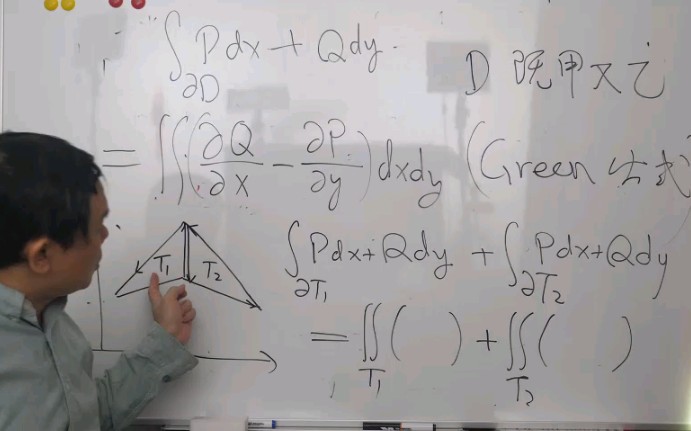 ∫_{∂D} Pdx + Qdy
D 既甲又乙
= ∬(∂Q/∂x - ∂P/∂y) dxdy (Green 公式)
∫_{∂T₁} Pdx+Qdy + ∫_{∂T₂} Pdx+Qdy
= ∬_{T₁}( ) + ∬_{T₂}( )
T₁ T₂